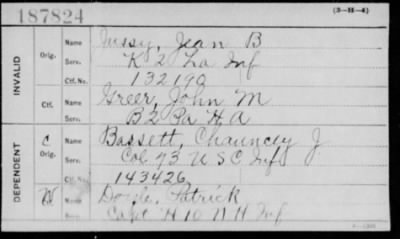 187824
(3-111-4)
INVALID
Orig. Name Jussy, Jean B
Serv. K 2 La Inf
Ctf. No. 132190
Ctf. Name Greer, John M
Serv. B 2 Pa H A
DEPENDENT
C Orig. Name Bassett, Chauncey J
Serv. Col 73 U S C Inf
Ctf. No. 143426
W Ctf. Name Doyle, Patrick
Serv. Capt H 10 N H Inf